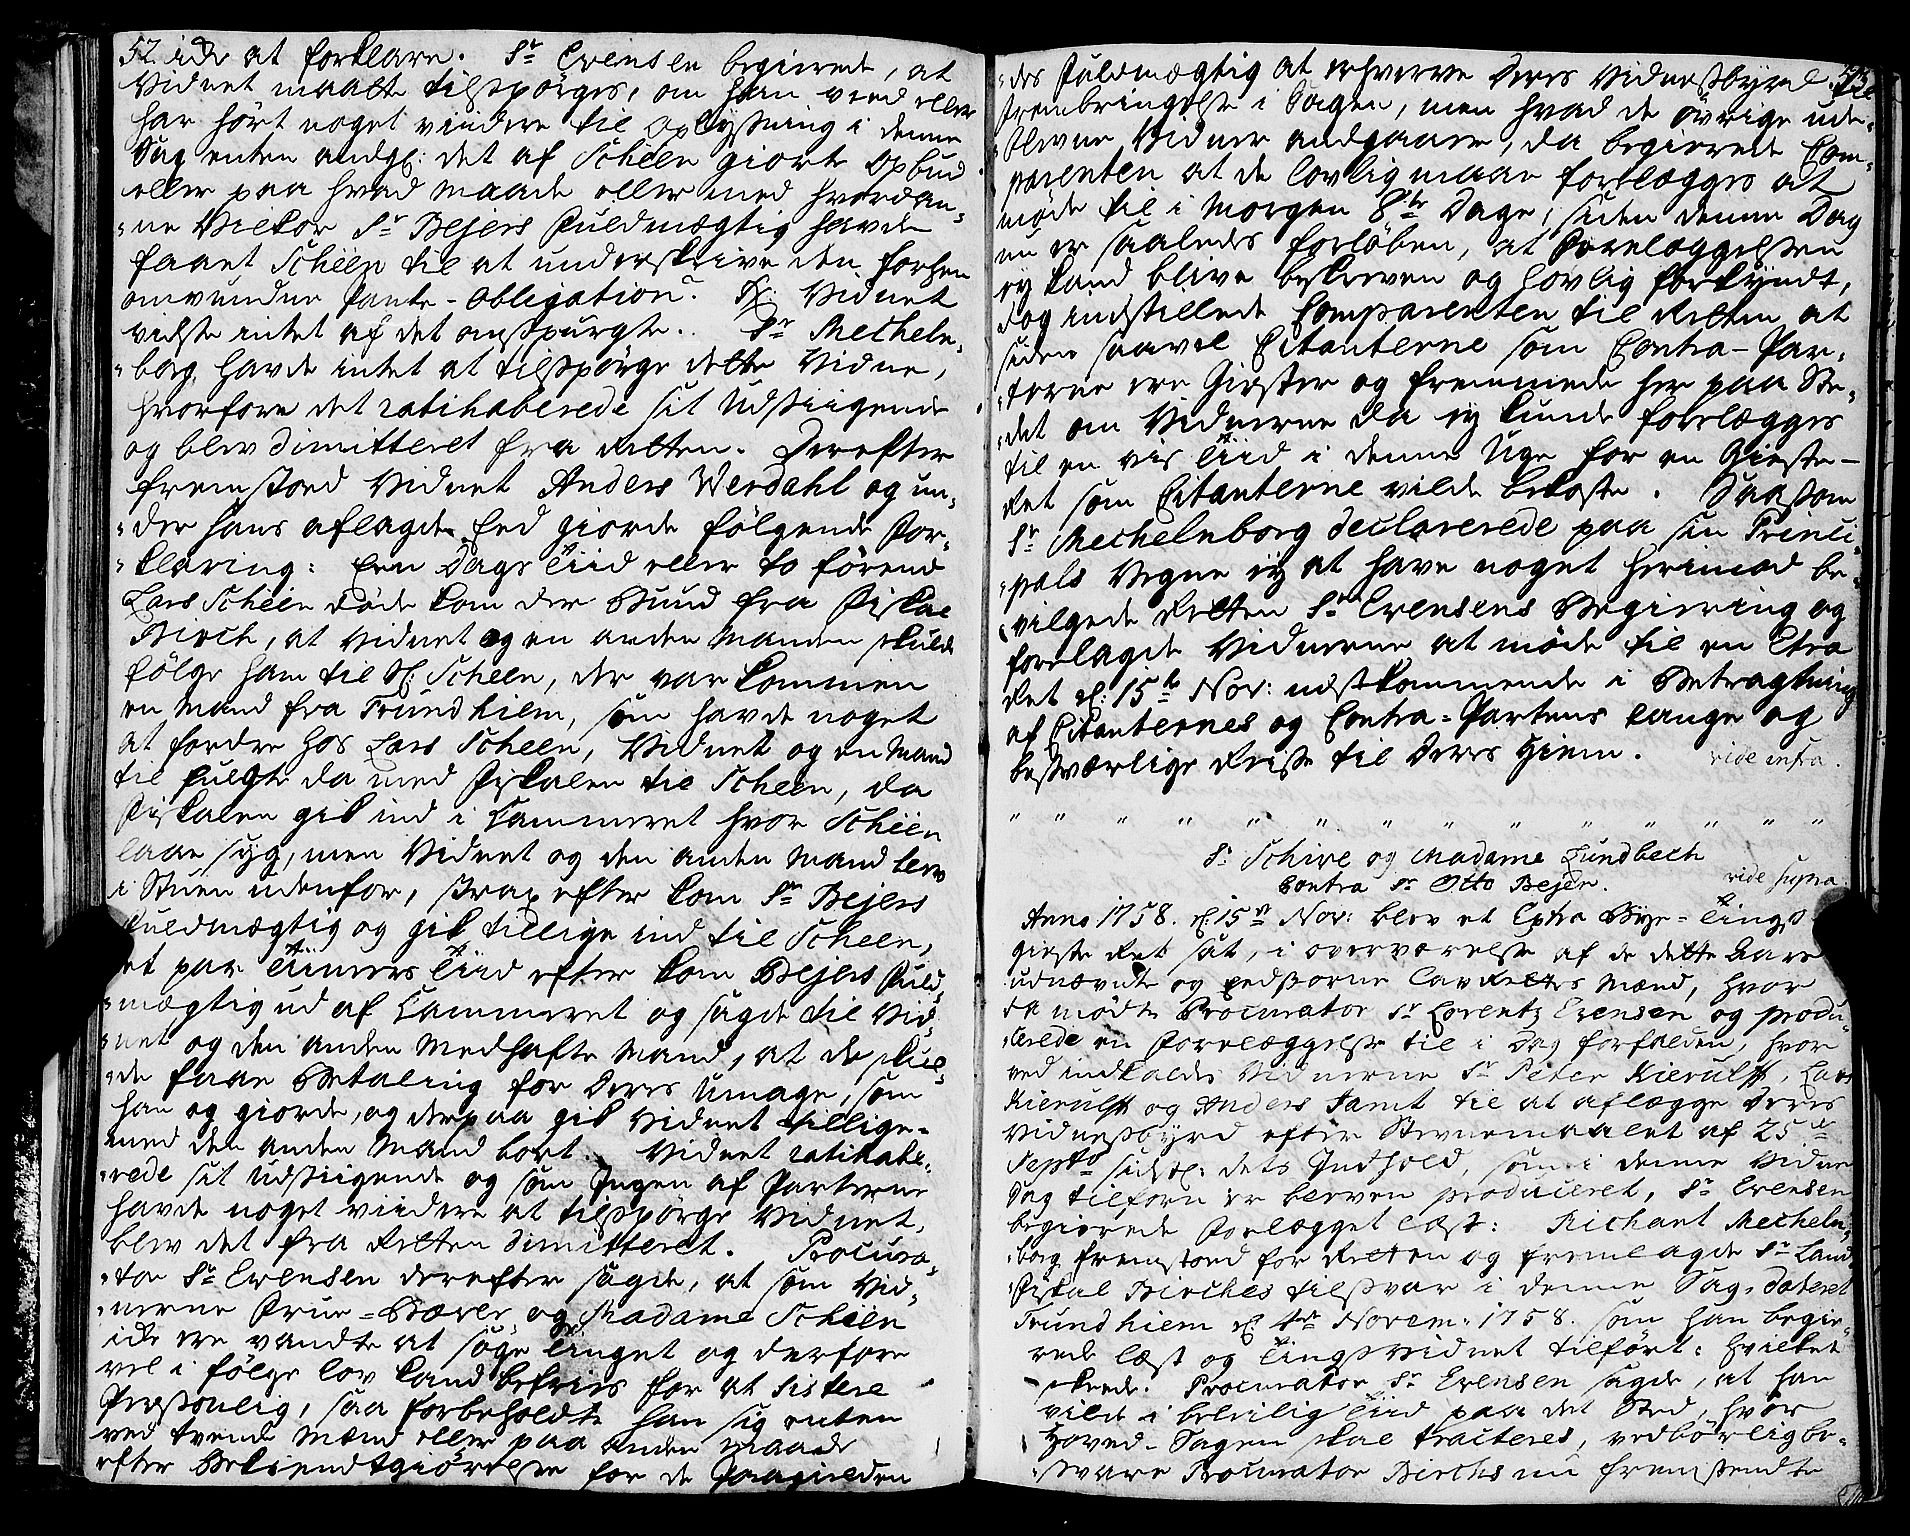 52 ike at forklare. Sr Evensen begierede, at
Vidnet maatte tilspörges, om han veed eller
har hört noget viidere til oplysning i denne
Sag enten andgl: det af Scheen giorte opbud
eller paa hvad maade eller med hvordan-
ne Vilkor Sr Bejers Fuldmægtig havde
faaet Scheen til at underskrive den forhen
omvundne Pante-Obligation. Rx: Vidnet
viste intet af det omspurgte. Sr Mecheln-
borg havde intet at tilspörge dette Vidne,
hvorfore det ratihaberede sit Udsiigende
og blev dimitteret fra Retten. Derefter
fremstoed Vidnet Anders Werdahl og un-
der hans aflagde Eed giorde fölgende For-
klaring: Een Dags Tiid eller to förend
Lars Scheen döde kom der Bund fra Fiskal
Birch, at Vidnet og en anden Mand skulde
fölge ham til Sl: Scheen, der var kommen
en Mand fra Trundhiem, som havde noget
at fordre hos Lars Scheen, Vidnet og en Mand
til fulgte da med Fiskalen til Scheen, da
Fiskalen gik ind i Kammeret hvor Scheen
laae syg, men Vidnet og den anden Mand blev
i Stuen udenfor, strax efter kom Sr Bejers
Fuldmægtig og gik tillige ind til Scheen,
et par Tiimers Tiid efter kom Bejers Fuld-
mægtig ud af Kammeret og sagde til Vid-
net og den anden Medhafte Mand, at de skul-
de faae Betaling for deres Umage, som
han og giorde, og derpaa gik Vidnet tillige-
med den anden Mand bort. Vidnet ratihabe-
rede sit Udsiigende og som Ingen af Parterne
havde noget viidere at tilspörge Vidnet,
blev det fra Retten dimitteret. Procura-
tor Sr Evensen derefter sagde, at som Vid-
nerne Frue og Madame Scheen
ike ere vandte at söge Tinget og derfore
vel i fölge Lov kand befries for at sistere
Personlig, saa forbeholdte han sig enten
ved tvende Mænd eller paa anden maade
efter Bekiendtgiörelse for de Paagieldendes
des Fuldmægtig at erhverve deres Vidnesbyrd til
frembringelse i Sagen, men hvad de övrige ude-
blevne Vidner andgaaer, da begierede Com-
parenten at de lovlig maae forelægges at
möde til i Morgen 8te Dage, siden denne Dag
nu er saaledes forlöben, at Forelæggelsen
ey kand blive beskreven og lovlig forkyndt,
dog indstillede Comparenten til Retten at
siden saavel Citanterne som Contra-Par-
terne ere Giester og fremmede her paa Ste-
det om Vidnerne da ey kunde forelægges
til en vis Tiid i denne Uge for en Gieste-
Ret som Citanterne vilde bekoste. Saasom
Sr Mechelnborg declarerede paa sin Princi-
pals Vegne ey at have noget herimod be-
vilgede Retten Sr Evensens Begiering og
forelagde Vidnerne at möde til en Extra
Ret d: 15de Nov: nestkommende i Betragtning
af Citanternes og Contra-Partens lange og
besværlige Reise til deres Hiem. vide infra.
Sr Schive og Madame Lundbech
contra Sr Otto Bejer. vide supra
Anno 1758. d: 15de Nov: blev et Extra Bye-Tings
gieste Ret sat, i overværelse af de dette Aar
udnævnte og eedsvorne Lavrettes Mænd, hvor
da mödte Procurator Sr Lorentz Evensen og produ-
cerede en Forelæggelse til i Dag forfalden, hvor
ved indkaldes Vidnerne Sr Peter Kierulff, Lars
Kierulff og Anders Samt til at aflægge deres
Vidnesbyrd efter Stevnemaalet af 25de
Septbr sidstl: dets Indhold, som i denne Vidne
Sag tilforn er bleven produceret, Sr Evensen
begierede Forelægget læst: Richart Mecheln-
borg fremstoed for Retten og fremlagde Sr Land
Fiskal Birches tilsvar i denne Sag, dateret
Trundhiem d: Novem: 1758. som han begie-
rede læst og Tingsvidnet tilfört: hvilket
skeede. Procurator Sr Evensen sagde, at han
vilde i beleilig Tiid paa det Sted, hvor
Hoved-Sagen skal tracteres, vedbörlig be-
svare Procurator Birchs nu fremsendte